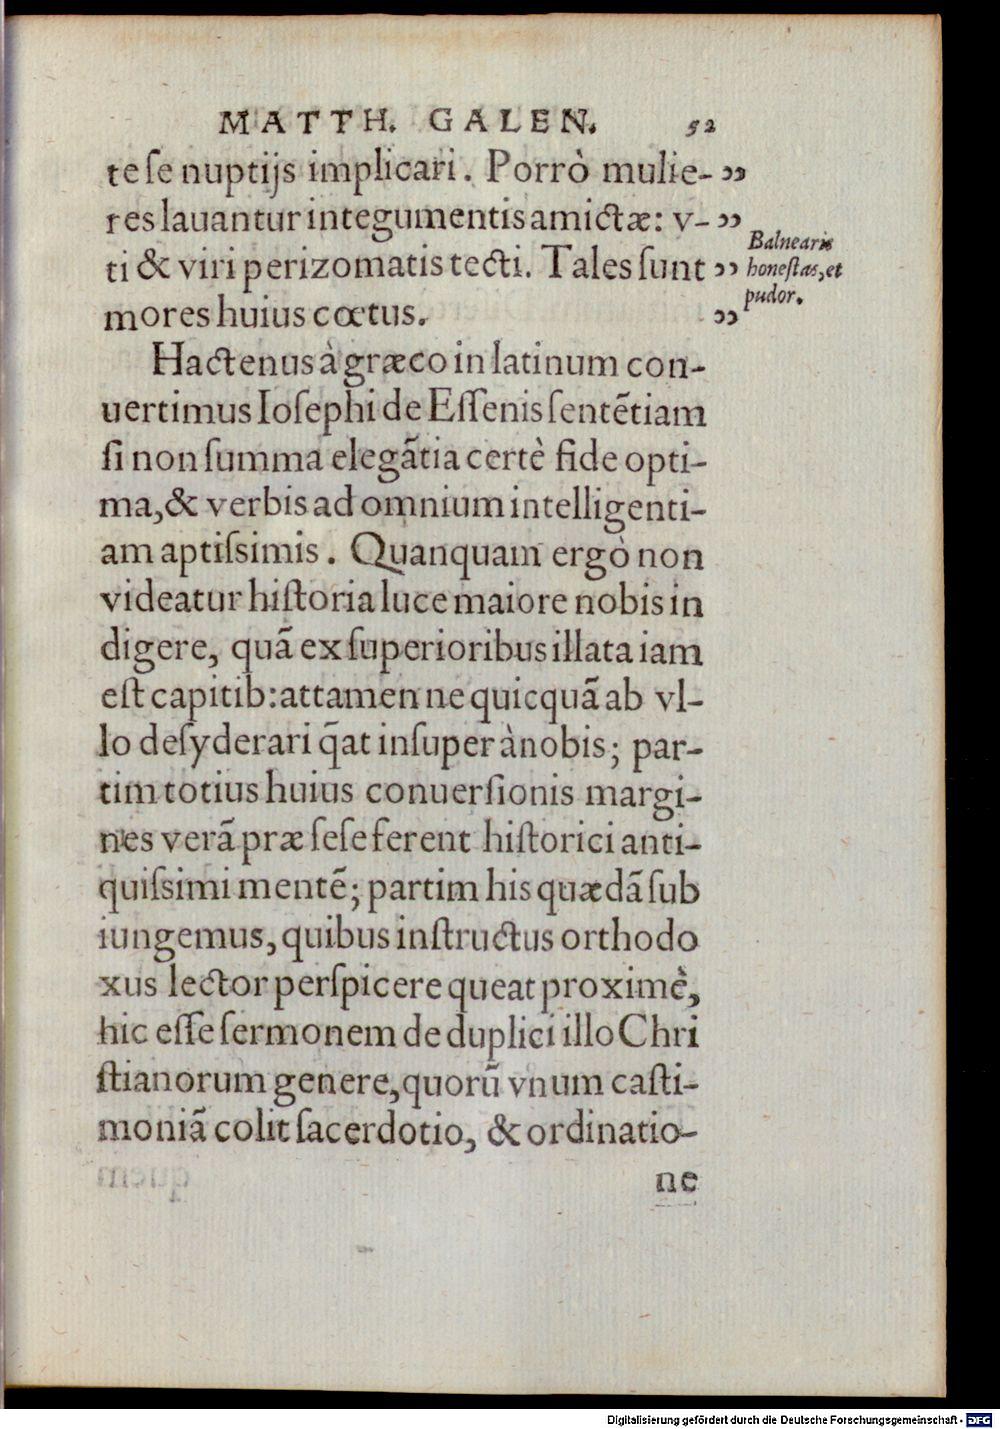 MATTH. GALEN. 52
te ſe nuptijs implicari. Porrò mulie- ”
res lauantur integumentis amictæ: v- ”
ti & viri perizomatis tecti. Tales ſunt ”
mores huius cœtus. ”
Balnearis
honeſtas, et
pudor.
Hactenus à græco in latinum con-
uertimus Ioſephi de Eſſenis ſentētiam
ſi non ſumma elegātia certè fide opti-
ma, & verbis ad omnium intelligenti-
am aptiſsimis. Quanquam ergò non
videatur hiſtoria luce maiore nobis in
digere, quā ex ſuperioribus illata iam
eſt capitib: attamen ne quicquā ab vl-
lo deſyderari q̄at inſuper à nobis; par-
tim totius huius conuerſionis margi-
nes verā præ ſeſe ferent hiſtorici anti-
quiſsimi mentē; partim his quædā ſub
iungemus, quibus inſtructus orthodo
xus lector perſpicere queat proximè,
hic eſſe ſermonem de duplici illo Chri
ſtianorum genere, quorū vnum caſti-
moniā colit ſacerdotio, & ordinatio-
ne
Digitalisierung gefördert durch die Deutsche Forschungsgemeinschaft - DFG